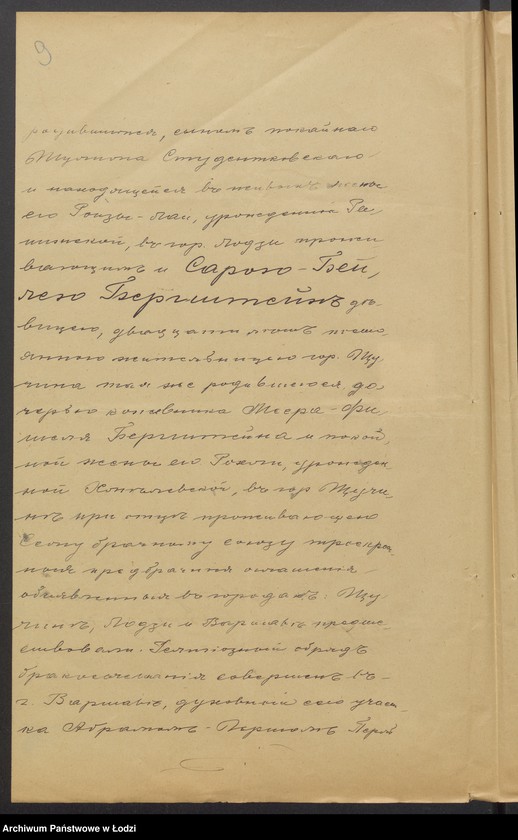 9
родившимся, сыномъ покойнаго
Шулима Студентковскаго
и находящейся въ живыхъ жены
его Ройзы-Леи, урожденной Ра-
шинской, въ гор. Лодзи прожи
вающимъ и Сарою-Бей,
лею Бернштейнъ дѣ-
вицею, двадцати лѣтъ посто,
янною жительницею гор. Щу
чина там же родившеюся, до
черью Меера-Фи,
шеля Бернштейна и покой,
ной жены его Рохли, урожден
ной въ гор Щучи,
нѣ при отцѣ проживающею
Сему брачному союзу троекрат
ныя предбрачныя оглашенія
объявленныя въ городахъ: Щу
чинѣ, Лодзи и Варшавѣ предше,
ствовали. Религіозный обрядъ
бракосочетанія совершенъ въ-
г. Варшавѣ, духовный сего участ,
ка Абрамомъ-Першомъ Перль
Archiwum Państwowe w Łodzi